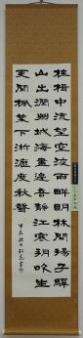 桂楫中流望空波兩畔明林開揚子驛
山出潤州城海盡邊陰靜江寒朔吹生
更聞楓葉下淅瀝度秋聲